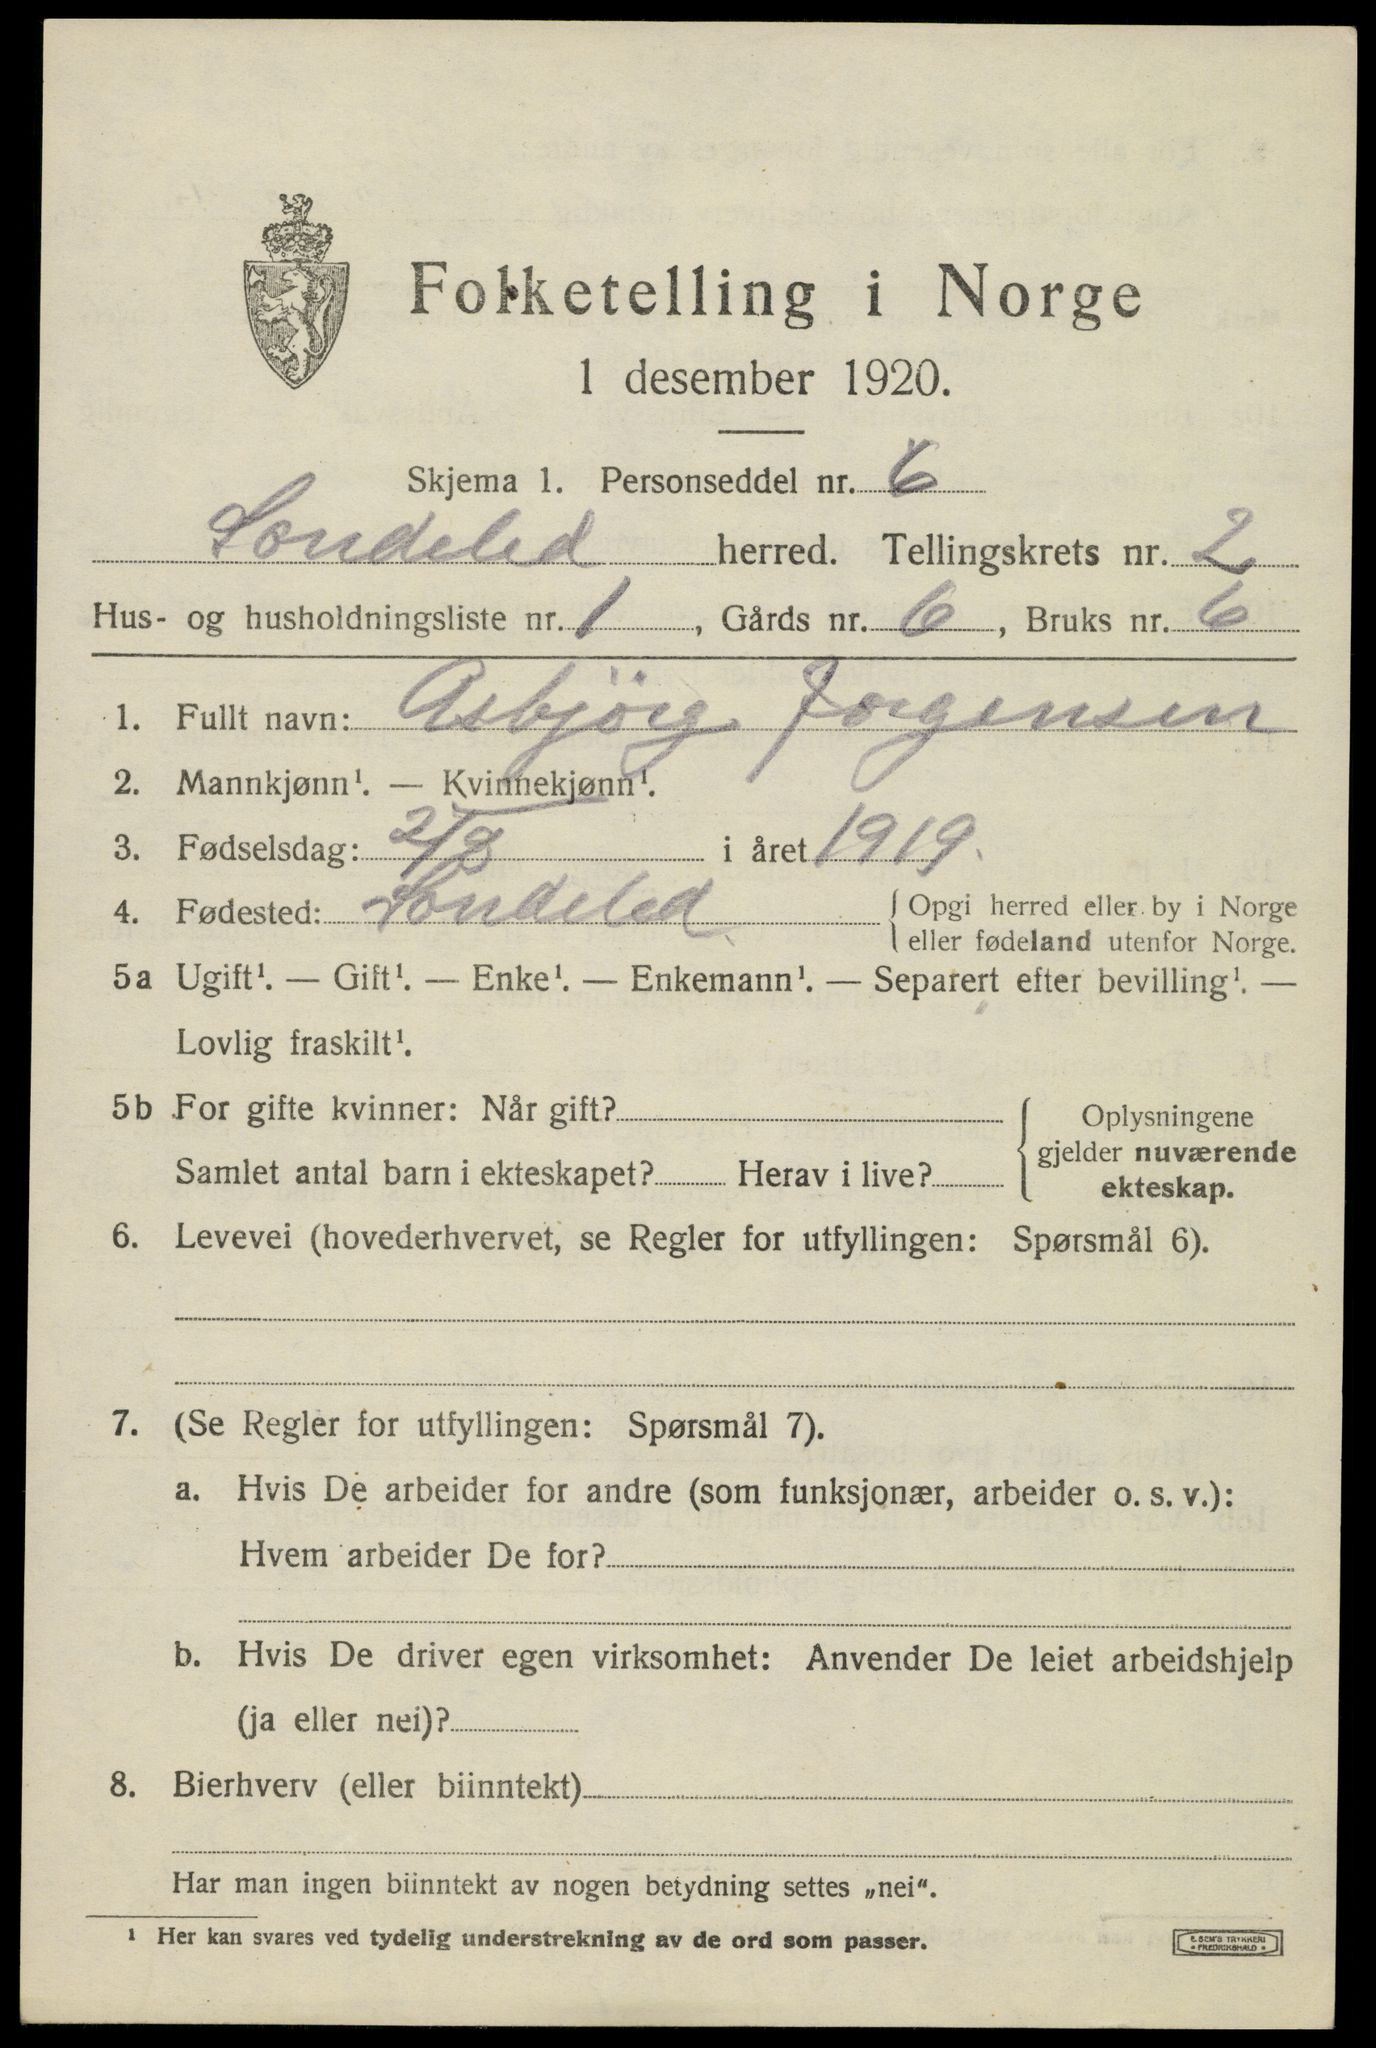 Folketelling i Norge
1 desember 1920.
Skjema 1. Personseddel nr. 6
Søndeled herred. Tellingskrets nr. 2
Hus- og husholdningsliste nr. 1, Gårds nr. 6, Bruks nr. 6
1. Fullt navn: Asbjörg Jørgensen
2. Mannkjønn¹. — Kvinnekjønn¹.
3. Fødselsdag: 2/8 i året 1919.
4. Fødested: Søndeled. Opgi herred eller by i Norge
eller fødeland utenfor Norge.
5a Ugift¹. — Gift¹. — Enke¹. — Enkemann¹. — Separert efter bevilling¹. —
Lovlig fraskilt¹.
5b For gifte kvinner: Når gift?
Samlet antal barn i ekteskapet? Herav i live?
Oplysningene
gjelder nuværende
ekteskap.
6. Levevei (hovederhvervet, se Regler for utfyllingen: Spørsmål 6).
7. (Se Regler for utfyllingen: Spørsmål 7).
a. Hvis De arbeider for andre (som funksjonær, arbeider o. s. v.):
Hvem arbeider De for?
b. Hvis De driver egen virksomhet: Anvender De leiet arbeidshjelp
(ja eller nei)?
8. Bierhverv (eller biinntekt)
Har man ingen biinntekt av nogen betydning settes „nei“.
¹ Her kan svares ved tydelig understrekning av de ord som passer.
E. SEM'S TRYKKERI
FREDRIKSHALD